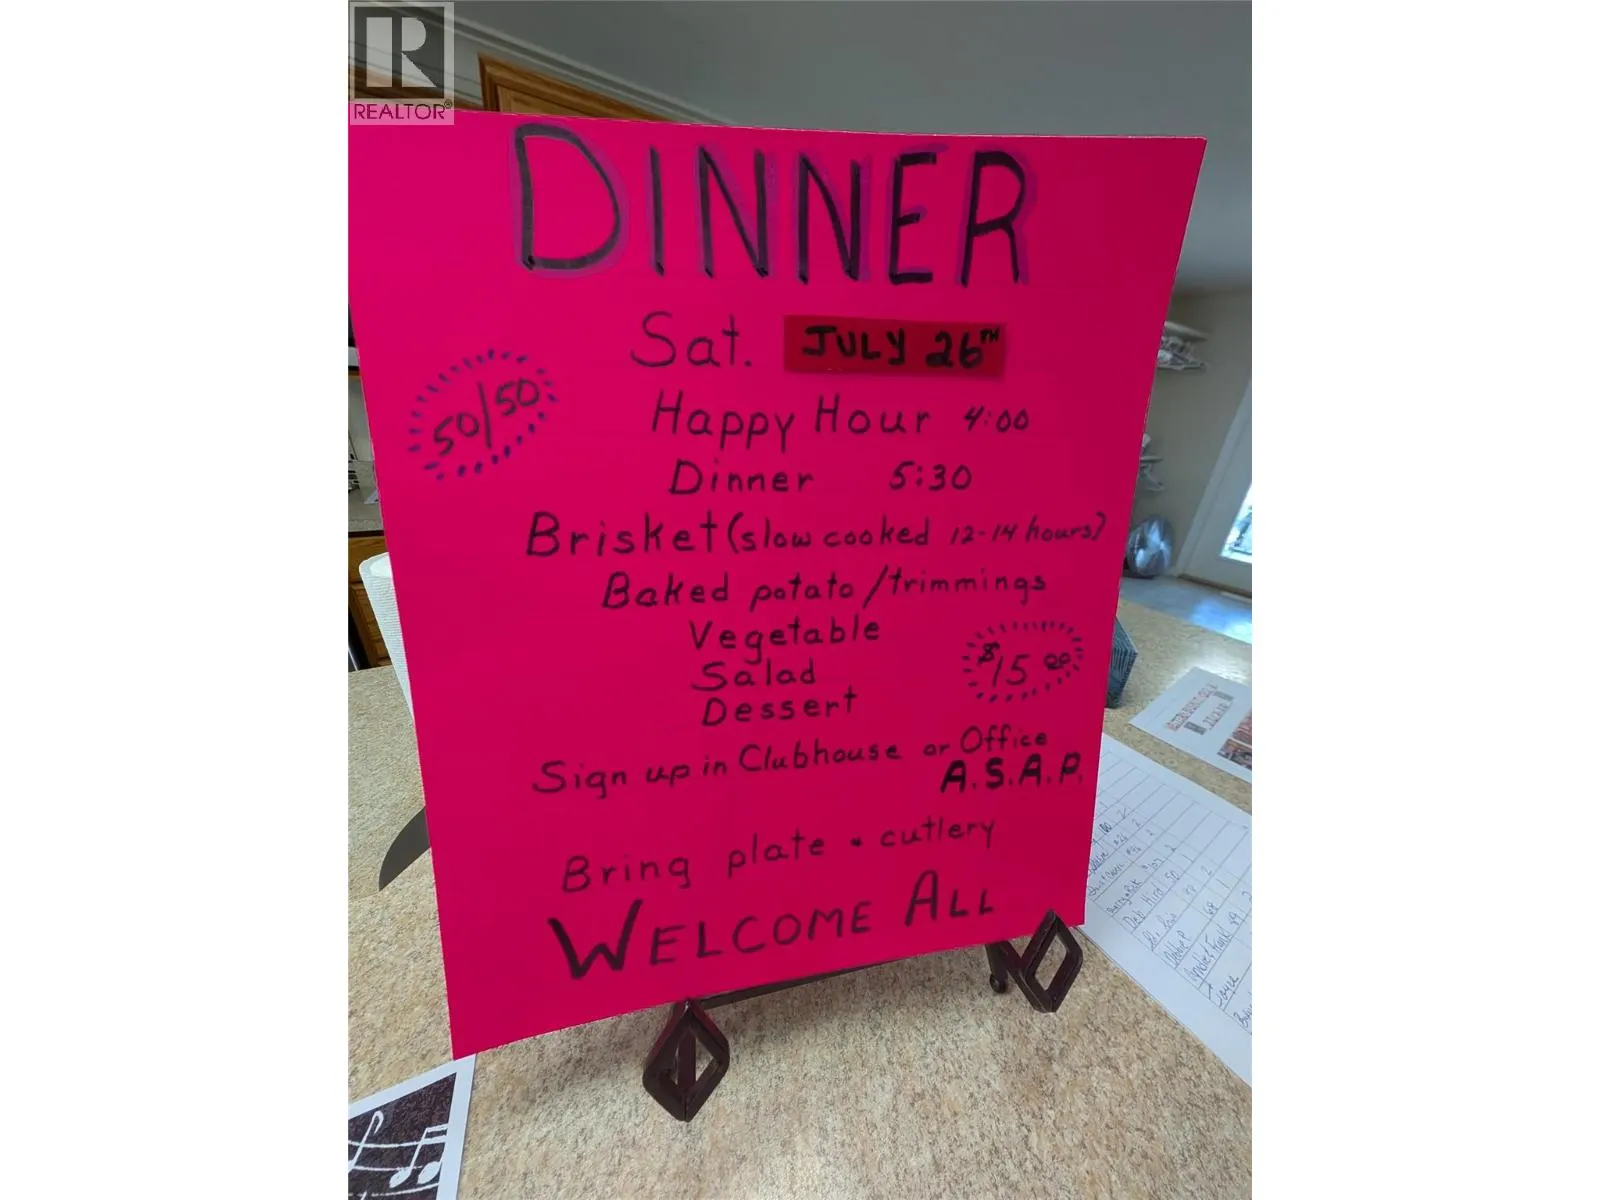 REALTOR®
DINNER
Sat. JULY 26TH
50/50
Happy Hour 4:00
Dinner 5:30
Brisket (slow cooked 12-14 hours)
Baked potato / trimmings
Vegetable
Salad
Dessert
$15.00
Sign up in Clubhouse or Office
A.S.A.P.
Bring plate & cutlery
WELCOME ALL
Deb Hird 50 1